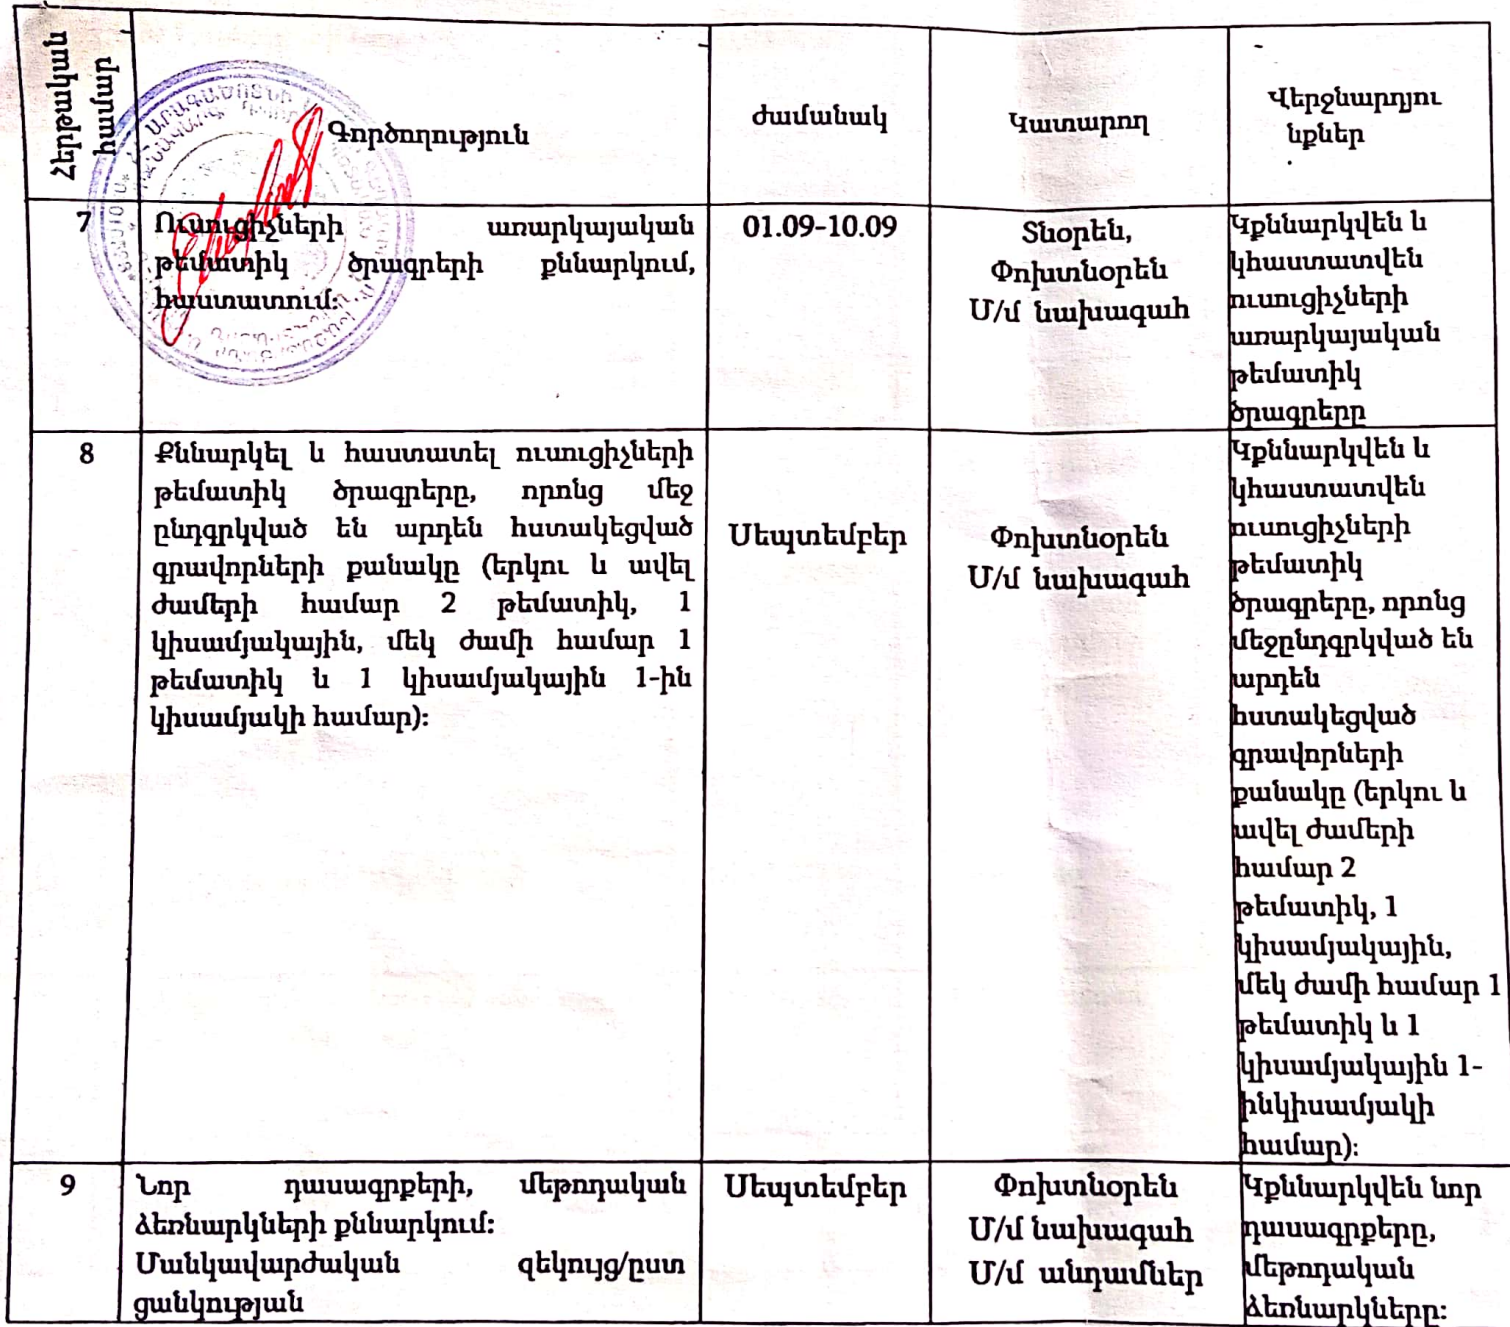 Հերթական
համար
Գործողություն
Ժամանակ
Կատարող
Վերջնարդյու
նքներ
7
Ուսուցիչների առարկայական
թեմատիկ ծրագրերի քննարկում,
հաստատում։
01.09-10.09
Տնօրեն,
Փոխտնօրեն
Մ/մ նախագահ
Կքննարկվեն և
կհաստատվեն
ուսուցիչների
առարկայական
թեմատիկ
ծրագրերը
8
Քննարկել և հաստատել ուսուցիչների
թեմատիկ ծրագրերը, որոնց մեջ
ընդգրկված են արդեն հստակեցված
գրավորների քանակը (երկու և ավել
ժամերի համար 2 թեմատիկ, 1
կիսամյակային, մեկ ժամի համար 1
թեմատիկ և 1 կիսամյակային 1-ին
կիսամյակի համար)։
Սեպտեմբեր
Փոխտնօրեն
Մ/մ նախագահ
Կքննարկվեն և
կհաստատվեն
ուսուցիչների
թեմատիկ
ծրագրերը, որոնց
մեջընդգրկված են
արդեն
հստակեցված
գրավորների
քանակը (երկու և
ավել ժամերի
համար 2
թեմատիկ, 1
կիսամյակային,
մեկ ժամի համար 1
թեմատիկ և 1
կիսամյակային 1-
ինկիսամյակի
համար)։
9
Նոր դասագրքերի, մեթոդական
ձեռնարկների քննարկում։
Մանկավարժական զեկույց/ըստ
ցանկության
Սեպտեմբեր
Փոխտնօրեն
Մ/մ նախագահ
Մ/մ անդամներ
Կքննարկվեն նոր
դասագրքերը,
մեթոդական
ձեռնարկները։